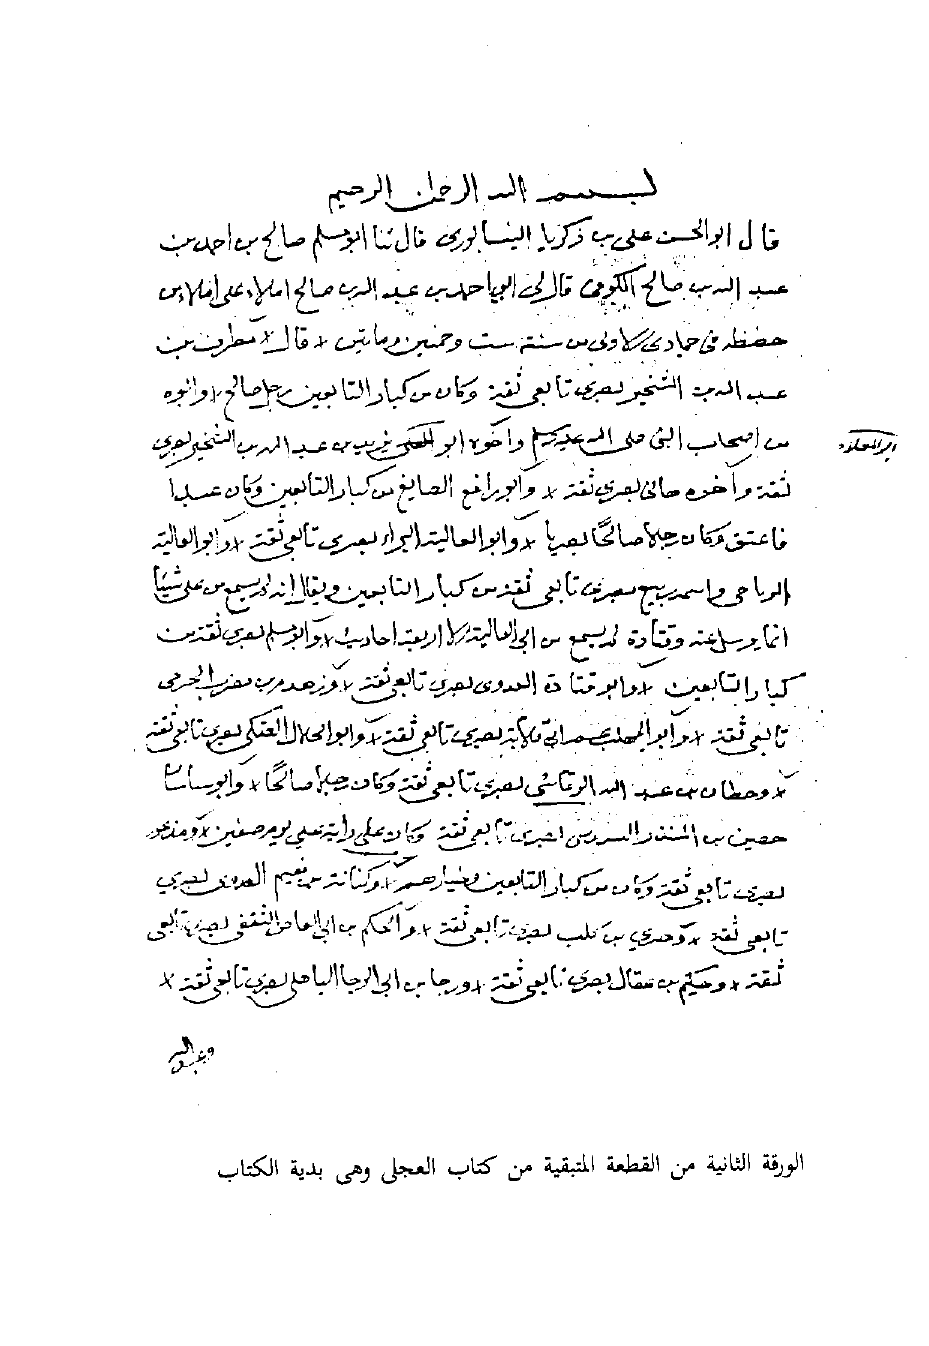 بسم الله الرحمن الرحيم
قال ابو الحسن علي بن زكريا النيسابورى قال ثنا ابو مسلم صالح بن احمد بن
عبد الله بن صالح الكوفى قال لى ابي احمد بن عبد الله بن صالح املاه على املاء من
حفظه فى جمادى الاولى من سنة ست وخمسين وماتين قال مطرف بن
عبد الله بن الشخير بصرى تابعى ثقة وكان من كبار التابعين رجل صالح وابوه
من اصحاب النبى صلى الله عليه وسلم واخوه ابو العلى يزيد بن عبد الله بن الشخير بصري
ابو العلاء
ثقة وأخوه هانى بصري ثقة وابو رافع الصايغ من كبار التابعين وكان عبدا
فاعتق وكان رجلا صالحا بصريا وابو العالية البراء بصرى تابعى ثقة وابو العالية
الرياحى واسمه رفيع بصرى تابعى ثقة من كبار التابعين ويقال انه لم يسمع من على شيئا
انما يرسل عنه وقتادة لم يسمع من ابى العالية الا اربعة احاديث وابو مسلم بصرى ثقة من
كبار التابعين وابو قتادة العدوى بصرى تابعى ثقة وزهدم بن مضرب الجرمى
تابعى ثقة وابو المهلب عم ابى قلابة بصرى تابعى ثقة وابو الحلال العتكى بصرى تابعى ثقة
وحطان بن عبد الله الرقاشى بصرى تابعى ثقة وكان رجلا صالحا وابو ساسان
حصين بن المنذر السدوسى بصرى تابعى ثقة وكان على راية على يوم صفين و
بصرى تابعى ثقة وكان من كبار التابعين وخيارهم وكنانة بن نعيم العدوى بصري
تابعى ثقة و بن كليب بصرى تابعى ثقة والحكم بن ابى العاص الثقفى بصرى تابعى
ثقة وحكيم بن عقال بصرى تابعى ثقة ورجا بن ابى الرجا الباهلى بصرى تابعى ثقة
وعبد الله
الورقة الثانية من القطعة المتبقية من كتاب العجلى وهى بدية الكتاب